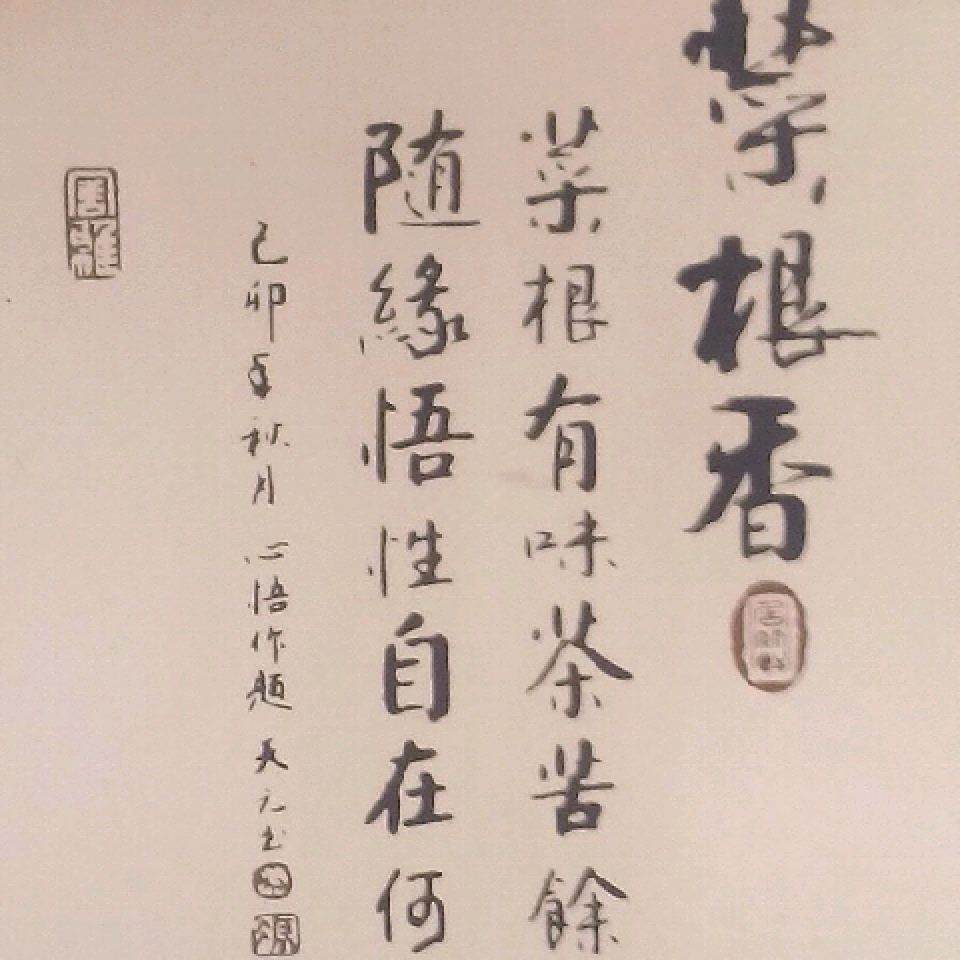 菜根香
菜根有味茶苦餘
随緣悟性自在何
己卯年秋月 心悟作題 天元书